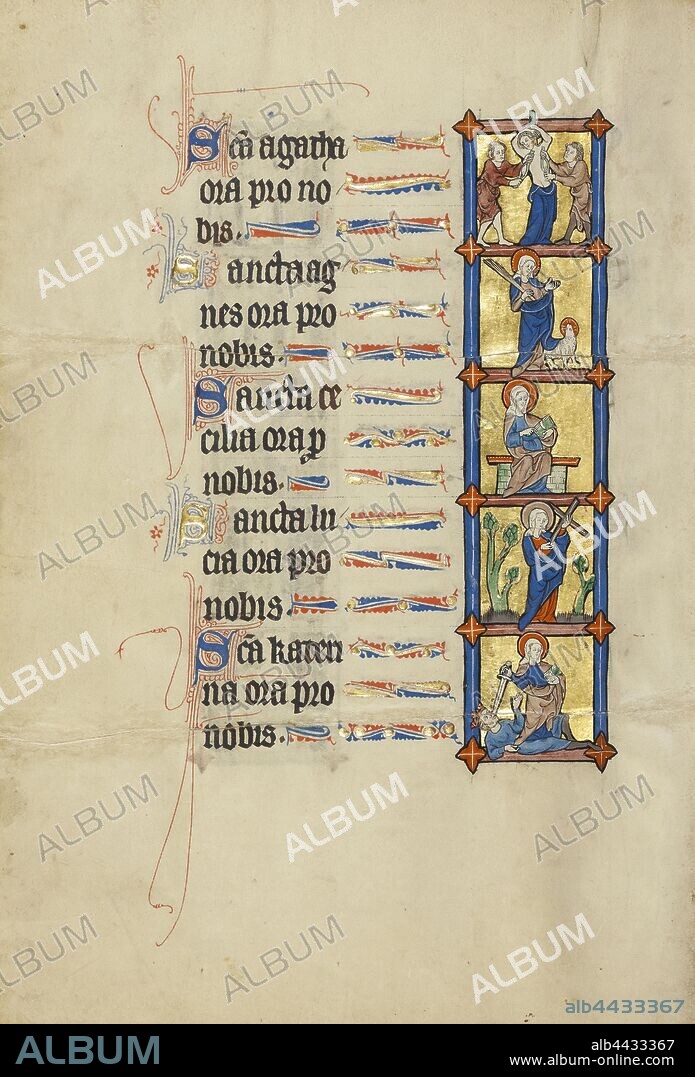 Scā agatha
ora pro no
bis.
Sancta ag
nes ora pro
nobis.
Sancta ce
cilia ora p
nobis.
Sancta lu
cia ora pro
nobis.
Scā kateri
na ora pro
nobis.
ALBUM
alb4433367
ALBUM
alb4433367
www.album-online.com